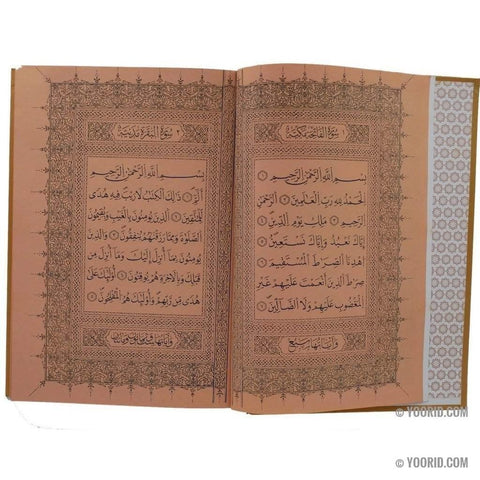 سورة الفاتحة مكية
بسم الله الرحمن الرحيم ١
الحمد لله رب العالمين ٢ الرحمن
الرحيم ٣ ملك يوم الدين ٤
إياك نعبد وإياك نستعين ٥
اهدنا الصرط المستقيم ٦
صرط الذين أنعمت عليهم غير
المغضوب عليهم ولا الضالين ٧
وآياتها سبع
٢ سورة البقرة مدنية
بسم الله الرحمن الرحيم
الم ١ ذلك الكتب لا ريب فيه هدى
للمتقين ٢ الذين يؤمنون بالغيب ويقيمون
الصلوة ومما رزقنهم ينفقون ٣ والذين
يؤمنون بما أنزل إليك وما أنزل من
قبلك وبالآخرة هم يوقنون ٤ أولئك على
هدى من ربهم وأولئك هم المفلحون ٥
© YOORID.COM
© YOORID.COM